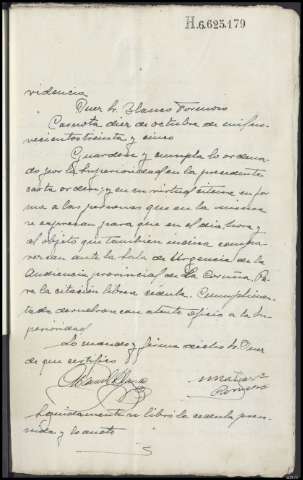 H.6.625.179
videncia
Juez Sr. Blanco Formoso
Carnota diez de octubre de mil no-
vecientos treinta y cinco
Guardese y cumpla lo ordena-
do por la Superioridad en la precedente
carta orden; y en su virtud citese en for-
ma a las personas que en la misma
se expresan para que en el dia, hora y
al objeto que tambien indica compa-
rezcan ante la Sala de Urgencia de la
Audiencia provincial de La Coruña. Pa-
ra la citación librese cédula. Cumplimen-
tado devuelvase con atento oficio a la Su-
perioridad
Lo mando y firma dicho Sr. Juez
de que certifico
Seguidamente se libró la cedula preve-
nida y es auto